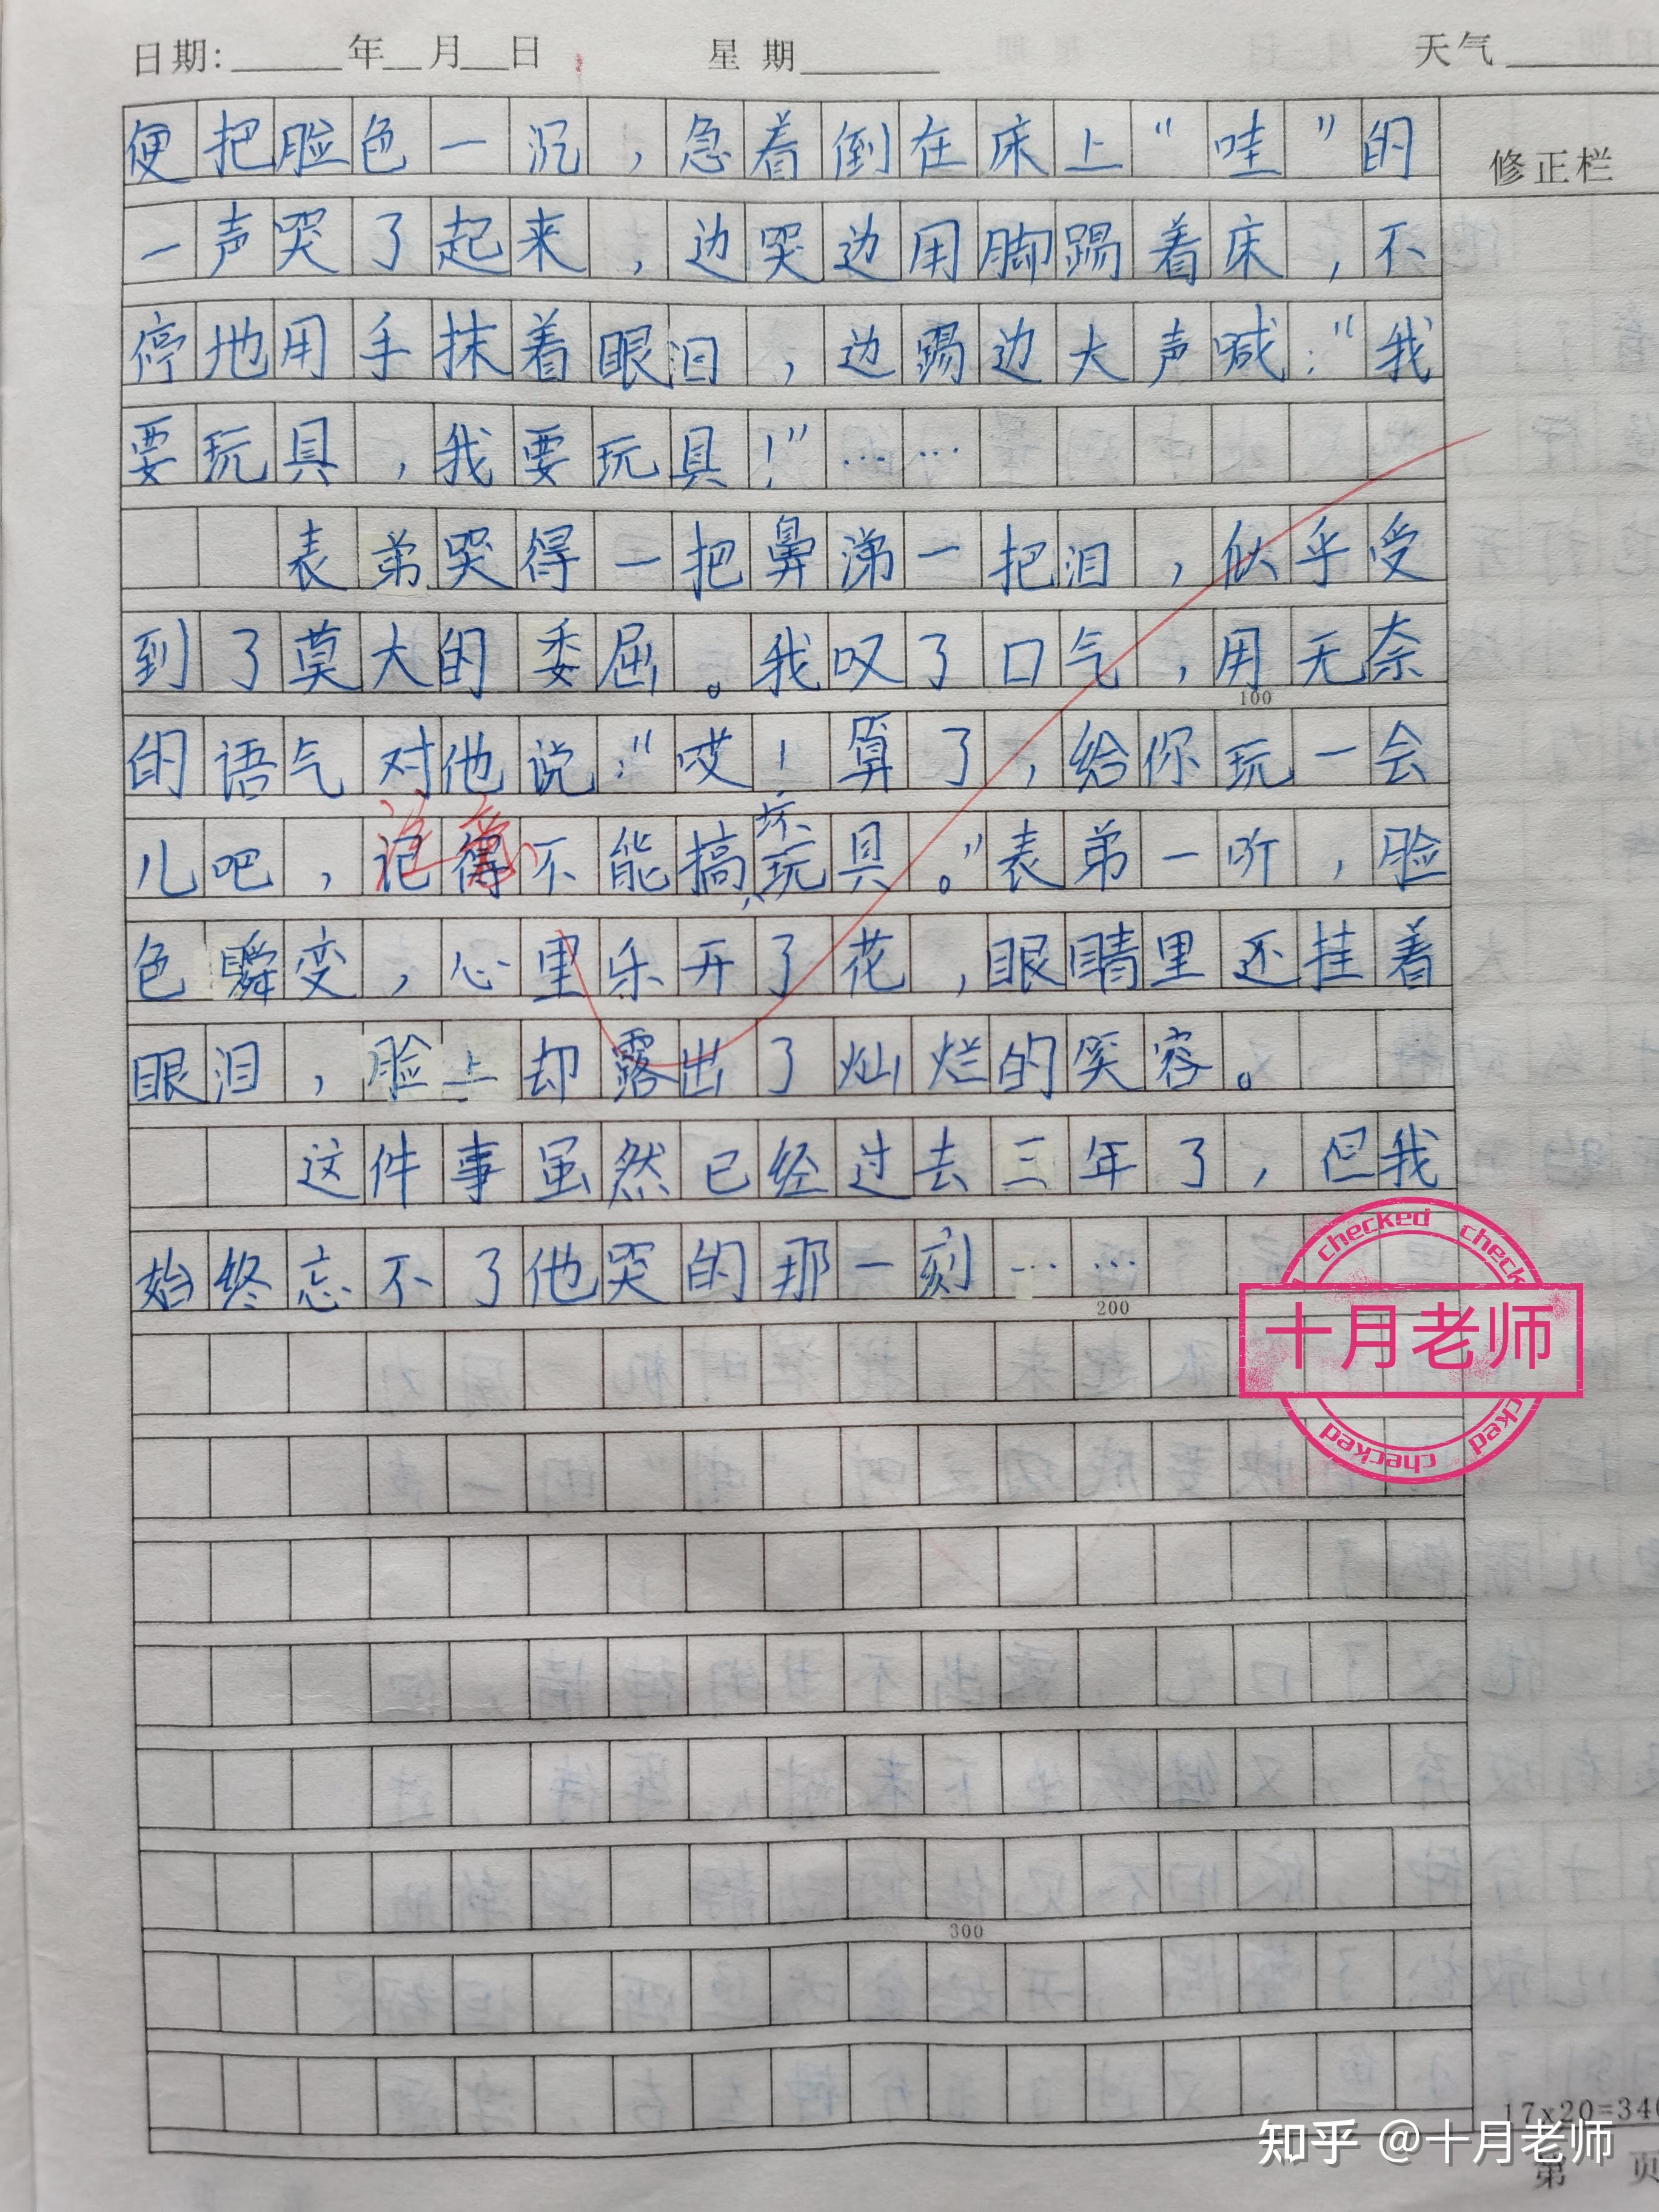 日期：____年__月__日 星期____ 天气____
修正栏
便把脸色一沉，急着倒在床上“哇”的
一声哭了起来，边哭边用脚踢着床，不
停地用手抹着眼泪，边踢边大声喊：“我
要玩具，我要玩具！”……
表弟哭得一把鼻涕一把泪，似乎受
到了莫大的委屈。我叹了口气，用无奈
的语气对他说：“哎！算了，给你玩一会
儿吧，记得不能搞坏玩具。”表弟一听，脸
色瞬变，心里乐开了花，眼睛里还挂着
眼泪，脸上却露出了灿烂的笑容。
这件事虽然已经过去三年了，但我
始终忘不了他哭的那一刻……
100
200
300
checked checked
十月老师
checked checked
17x20=340
知乎 @十月老师
第 页